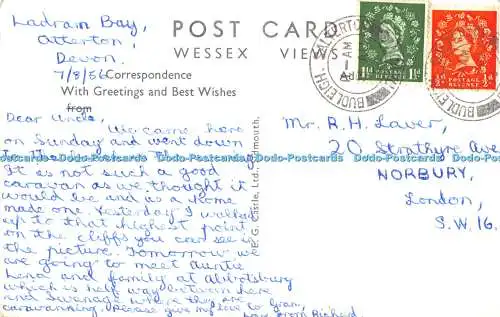 Ladram Bay,
Otterton,
Devon.
7/8/56
POST CARD
WESSEX VIEWS
Correspondence
With Greetings and Best Wishes
from
Dear Uncle,
We came here
on Sunday and went down
to the
It is not such a good
caravan as we thought it
would be and is a home
made one. Yesterday I walked
up to that highest point
on the cliffs you can see in
the picture. Tomorrow we
are going to meet Auntie
Lena and family at Abbotsbury
which is half way between here
and Swanage where they are
caravanning. Please give my love to Gran,
love from Richard
Castle, Ltd.
BUDLEIGH
POSTAGE
REVENUE
1½D
POSTAGE
REVENUE
½D
Mr. R.H. Laver,
20 Strathyre Ave
NORBURY,
London,
S.W.16.
Dodo-Postcards